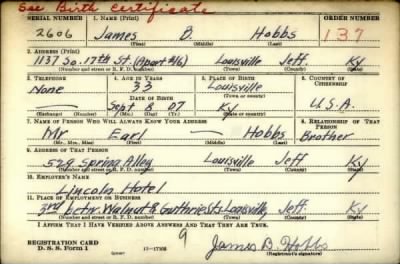 See Birth Certificate
SERIAL NUMBER 1. NAME (Print) ORDER NUMBER
2606 James B. Hobbs 137
(First) (Middle) (Last)
2. ADDRESS (Print)
1137 So. 17th St. (Apart #16) Louisville Jeff. Ky
(Number and street or R. F. D. number) (Town) (County) (State)
3. TELEPHONE 4. AGE IN YEARS 5. PLACE OF BIRTH 6. COUNTRY OF CITIZENSHIP
None 33 Louisville
DATE OF BIRTH (Town or county)
Sept 8 07 Ky U.S.A.
(Exchange) (Number) (Mo.) (Day) (Yr.) (State or country)
7. NAME OF PERSON WHO WILL ALWAYS KNOW YOUR ADDRESS 8. RELATIONSHIP OF THAT PERSON
Mr Earl — Hobbs Brother
(Mr., Mrs., Miss) (First) (Middle) (Last)
9. ADDRESS OF THAT PERSON
529 Spring Alley Louisville Jeff Ky
(Number and street or R. F. D. number) (Town) (County) (State)
10. EMPLOYER'S NAME
Lincoln Hotel
11. PLACE OF EMPLOYMENT OR BUSINESS
3rd Walnut & Guthrie Sts Louisville, Jeff. Ky
(Number and street or R. F. D. number) (Town) (County) (State)
I AFFIRM THAT I HAVE VERIFIED ABOVE ANSWERS AND THAT THEY ARE TRUE.
REGISTRATION CARD
D. S. S. Form 1 (over) 9 James B. Hobbs